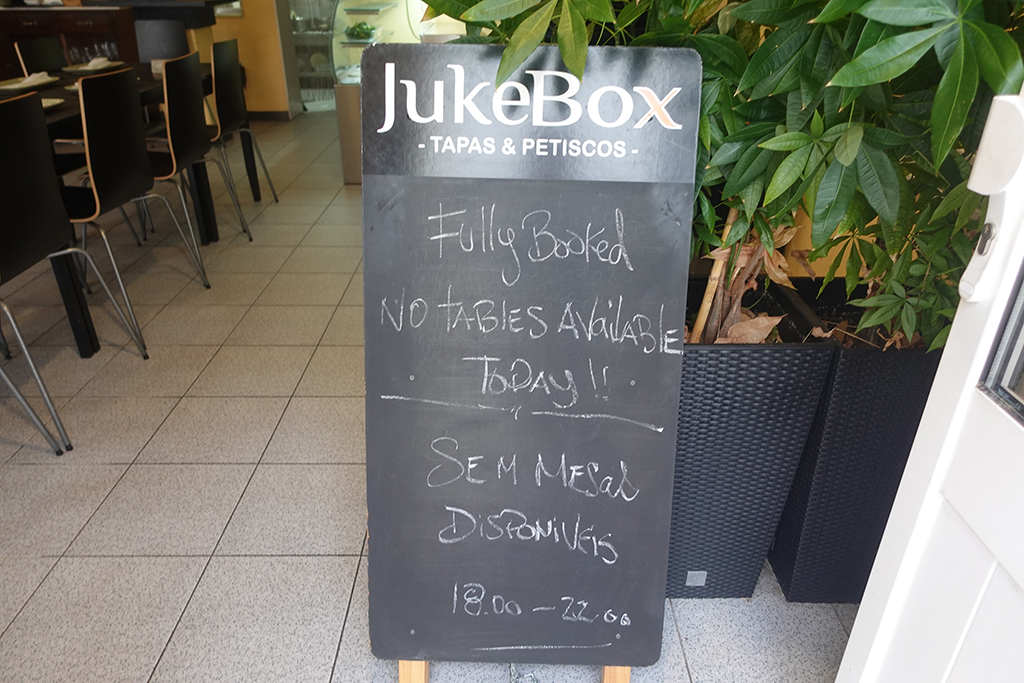 JukeBox
- TAPAS & PETISCOS -
Fully Booked
NO TABLES AVAilABLE
TODAY !!
SEM MESas
DISPONIVEIS
18.00 - 22.00